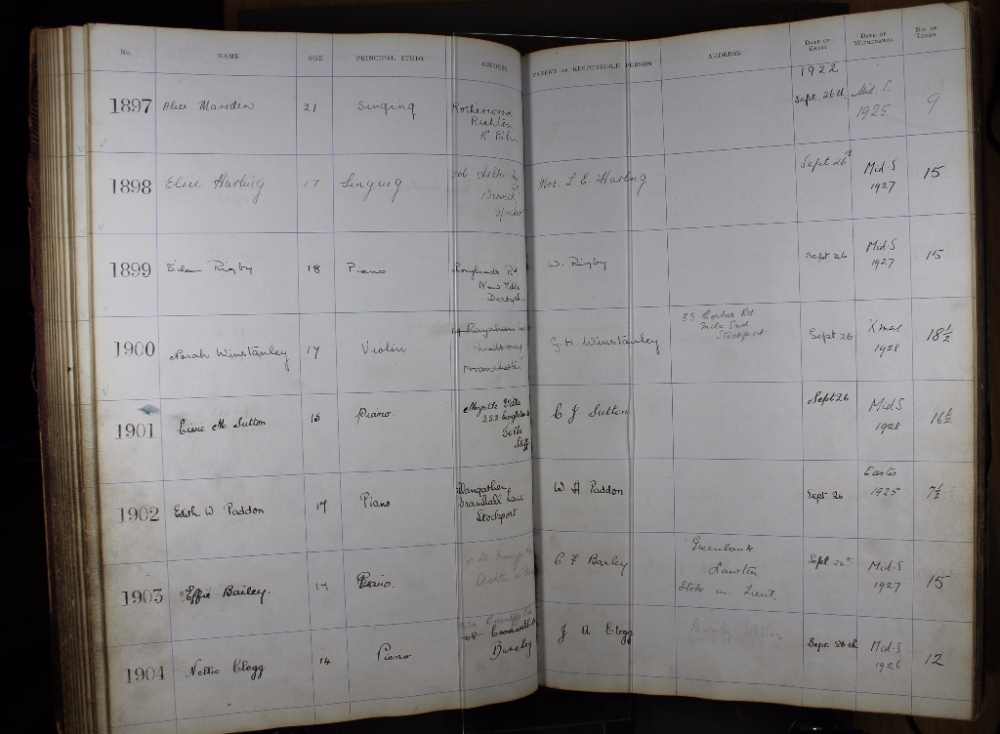 No. NAME AGE PRINCIPAL STUDY ADDRESS PARENT or RESPONSIBLE PERSON ADDRESS DATE OF ENTRY DATE OF WITHDRAWAL No. OF TERMS
1922
1897 Alice Marsden 21 Singing Sept. 26th Mid. S. 1925 9
1898 Elsie Harling 17 Singing Mrs. L E Harling Sept 26th Mid S 1927 15
1899 Rigby 18 Piano New Mills W. Rigby Sept 26 Mid S 1927 15
1900 Norah Winstanley 17 Violin Manchester G. H. Winstanley 33 Rd Mile End Stockport Sept 26 Xmas 1928 18½
1901 M Sutton Piano 222 C J Sutton Sept 26 Mid S 1928 16½
1902 Edith W Paddon 17 Piano Bramhall Lane Stockport W H Paddon Sept 26 Easter 1925 7½
1903 Effie Bailey. Piano. C F Bailey Greenbank Lawton Stoke on Trent Sept Mid S 1927 15
1904 Nellie Clegg 14 Piano Cromwell St Burnley J A Clegg Sept 26th Mid S 1926 12